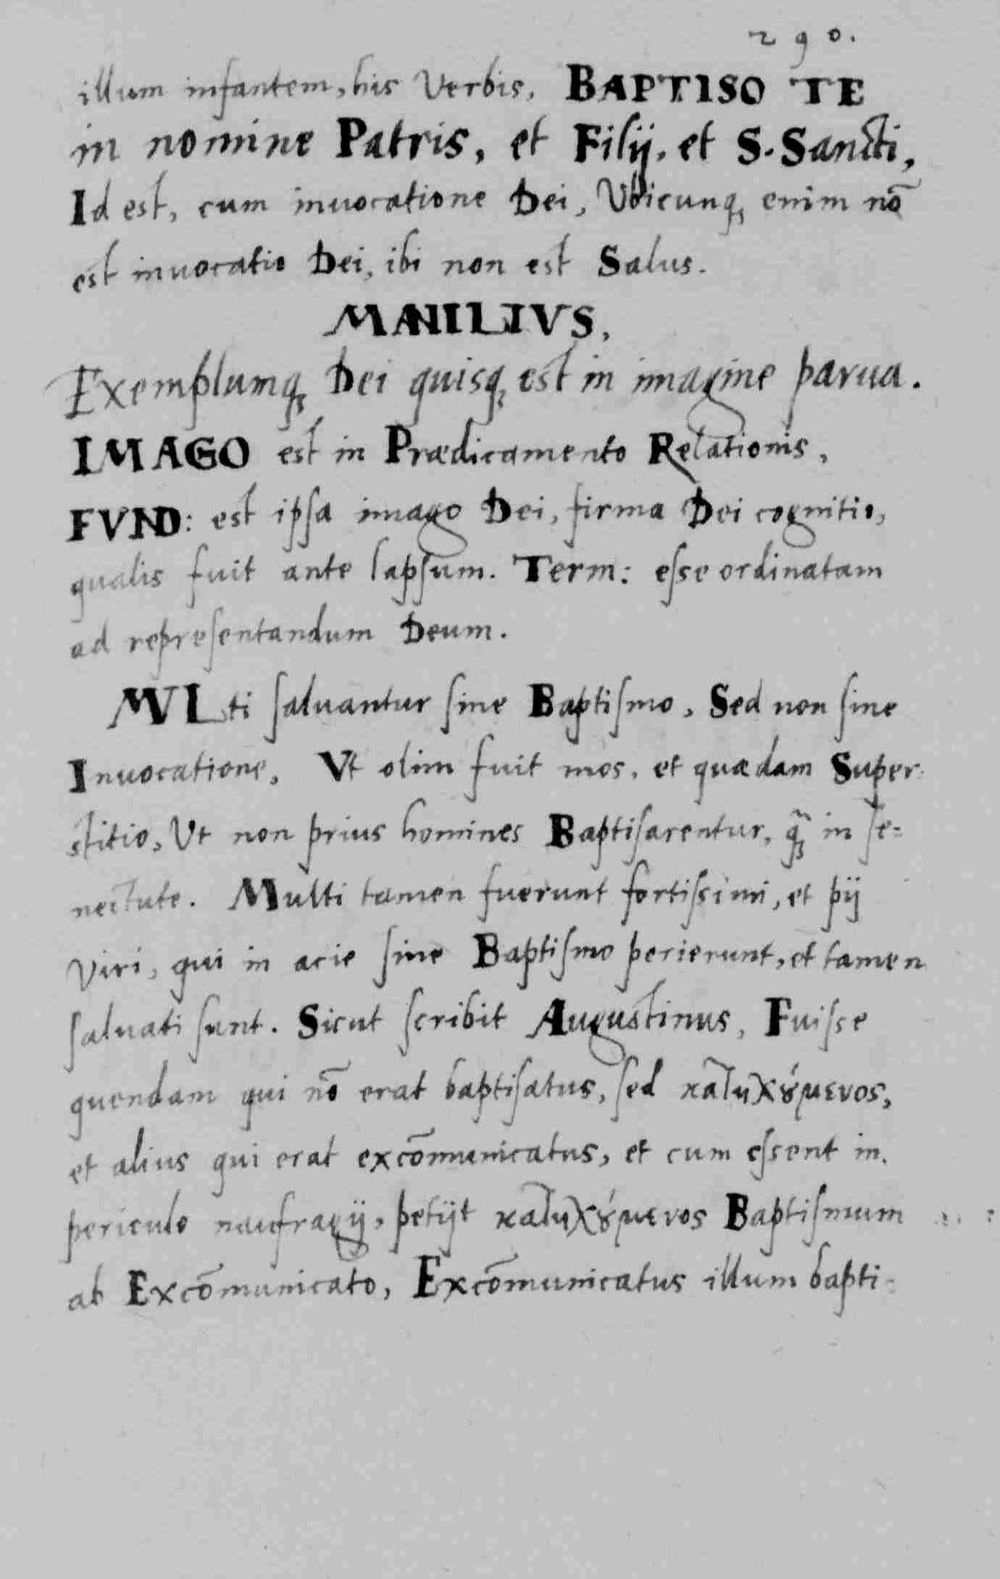 290.
illum infantem, his Verbis, BAPTISO TE
in nomine Patris, et Filij, et S. Sancti,
Id est, cum inuocatione Dei, Vbicunq, enim nō
est inuocatio Dei, ibi non est Salus.
MANILIVS,
Exemplumq, Dei quisq, est in imagine parua.
IMAGO est in Prædicamento Relationis,
FVND: est ipsa imago Dei, firma Dei cognitio,
qualis fuit ante lapsum. Term: esse ordinatam
ad representandum Deum.
MVLti saluantur sine Baptismo, Sed non sine
Inuocatione, Vt olim fuit mos, et quædam Super-
stitio, Vt non prius homines Baptisarentur, q̃ in se=
nectute. Multi tamen fuerunt fortissimi, et pij
Viri, qui in acie sine Baptismo perierunt, et tamen
saluati sunt. Sicut scribit Augustinus, Fuisse
quendam qui nō erat baptisatus, sed κατηχȣ́μενος,
et alius qui erat excōmunicatus, et cum essent in
periculo naufragij, petijt κατηχȣ́μενος Baptismum
ab Excōmunicato, Excōmunicatus illum bapti-